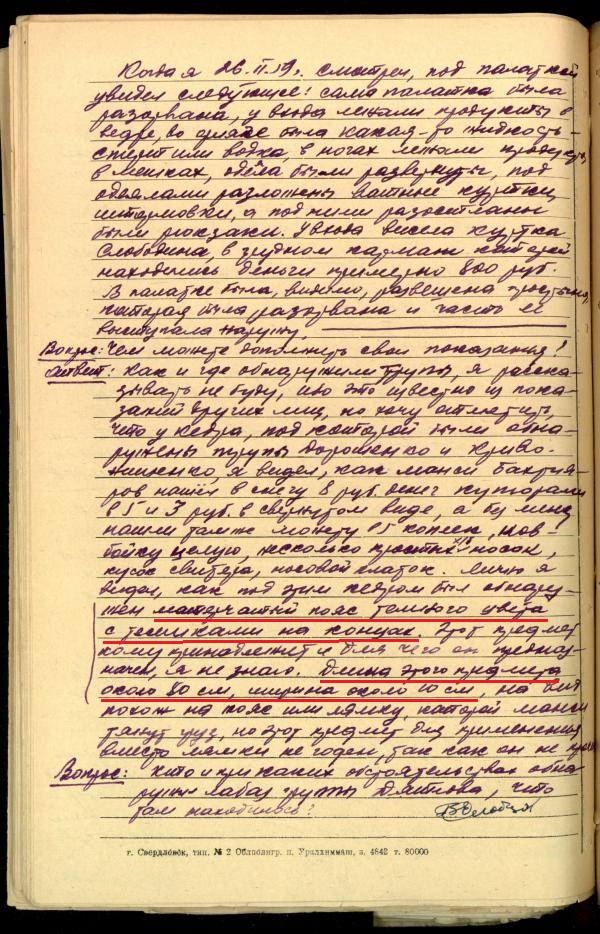 Когда я 26.II.59г. смотрел, под палаткой
увидел следующее: сама палатка была
разорвана, у входа лежали продукты в
ведре, во фляге была какая-то жидкость -
спирт или водка, в ногах лежали продукты
в мешках, одеяла были развернуты, под
одеялами разложены ватные куртки,
штормовки, а под ними разостланы
были рюкзаки. У входа висела куртка
Слободина, в грудном кармане которой
находились деньги примерно 800 руб.
В палатке была, видимо, развешена простыня,
которая была разорвана и часть её
выступала наружу.
Вопрос: Чем можете дополнить свои показания?
Ответ: Как и где обнаружили трупы, я расска-
зывать не буду, ибо это известно из пока-
заний других лиц, но хочу отметить,
что у кедра, под которой были обна-
ружены трупы Дорошенко и Криво-
нищенко, я видел, как манси Бахтия-
ров нашел в снегу 8 руб. денег купюрами
в 5 и 3 руб. в свернутом виде, а
нашли там же монету 5 копеек, ков-
бойку целую, несколько простых х/б носок,
кусок свитера, носовой платок. Лично я
видел, как под этим кедром был обнару-
жен матерчатый пояс темного цвета
с тесемками на концах. Этот предмет
кому принадлежит и для чего он предназ-
начен, я не знаю. Длина этого предмета
около 80 см, ширина около 10 см, на вид
похож на пояс или лямку, которой манси
тянут груз, но этот предмет для применения
вместо лямки не годен, так как он не
Вопрос: Кто и при каких обстоятельствах обна
ружил лабаз группы Дятлова, что
там находилось?
г. Свердловск, тип. № 2 Облполигр. п. Уралхиммаш, з. 4842 т. 80000